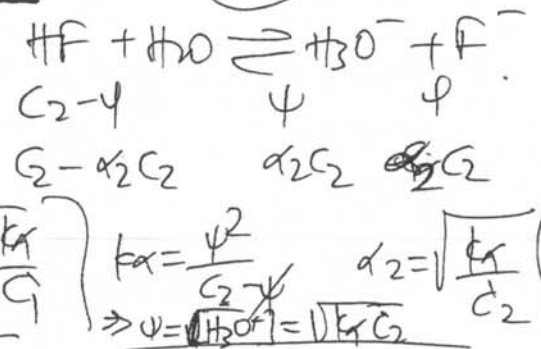 HF + H2O ⇌ H3O⁻ + F⁻.
C2-ψ ψ φ
C2 - α2C2 α2C2 α2C2
kα/C1 kα = ψ²/(C2-ψ) α2 = √(kα/C2)
⇒ ψ = [H3O⁺] = √(kαC2)